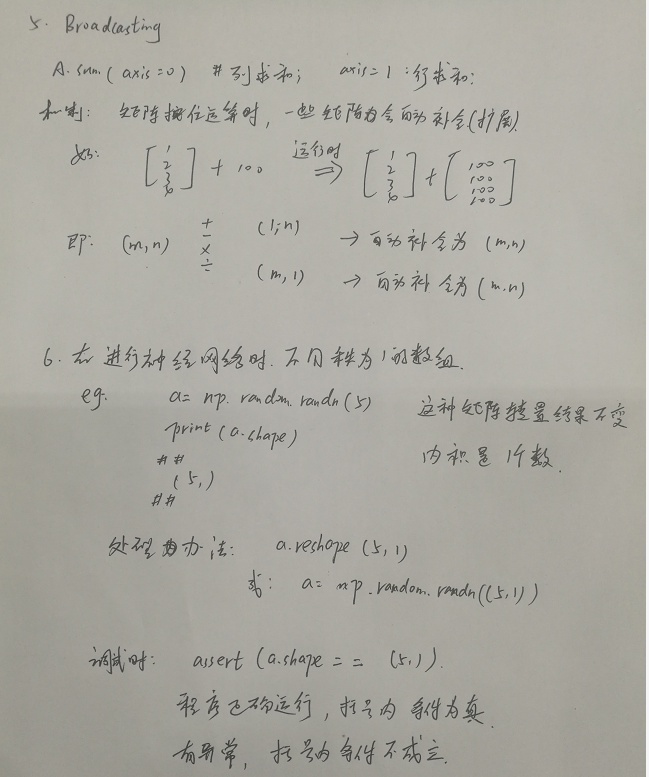 5. Broadcasting
A.sum(axis=0) #列求和; axis=1:行求和;
机制: 矩阵按位运算时, 一些矩阵会自动补全(扩展).
如: [1 2 3 4] + 100 运行时 ⇒ [1 2 3 4] + [100 100 100 100]
即: (m,n) + - × ÷ (1,n) → 自动补全为 (m,n)
(m,1) → 自动补全为 (m.n)
6. 在进行神经网络时. 不用秩为1的数组.
eg. a= np.random.randn(5) 这种矩阵转置结果不变
print(a.shape) 内积是1个数.
##
(5,)
##
处理办法: a.reshape(5,1)
或: a= np.random.randn((5,1))
调试时: assert(a.shape == (5,1).
程序正确运行, 括号内条件为真.
有异常, 括号内条件不成立.